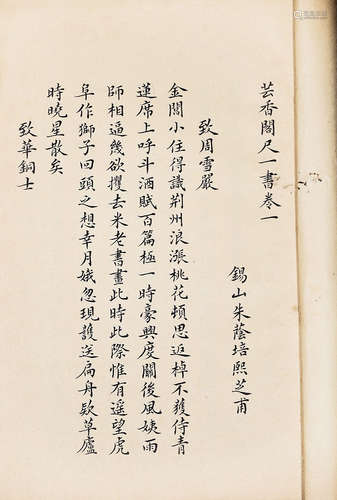 芸香閣尺一書卷一
錫山朱蔭培熙芝甫
致周雪巖
金閶小住得識荊州浪漲桃花頓思返棹不獲侍青
蓮席上呼斗酒賦百篇極一時豪興度關後風姨雨
師相逼幾欲攫去米老書畫此時此際惟有遥望虎
阜作獅子回頭之想幸月娥忽現護送扁舟欵草廬
時曉星散矣
致華銅士